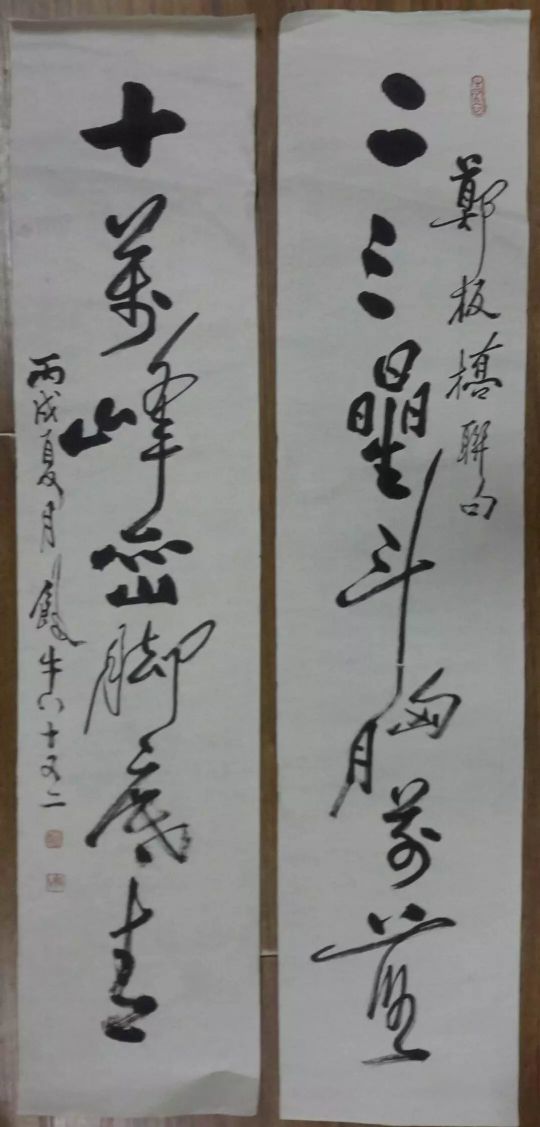 鄭板橋聯句
二三曐斗胸前
十萬峰巒脚底青
丙戌夏月牛八十又二